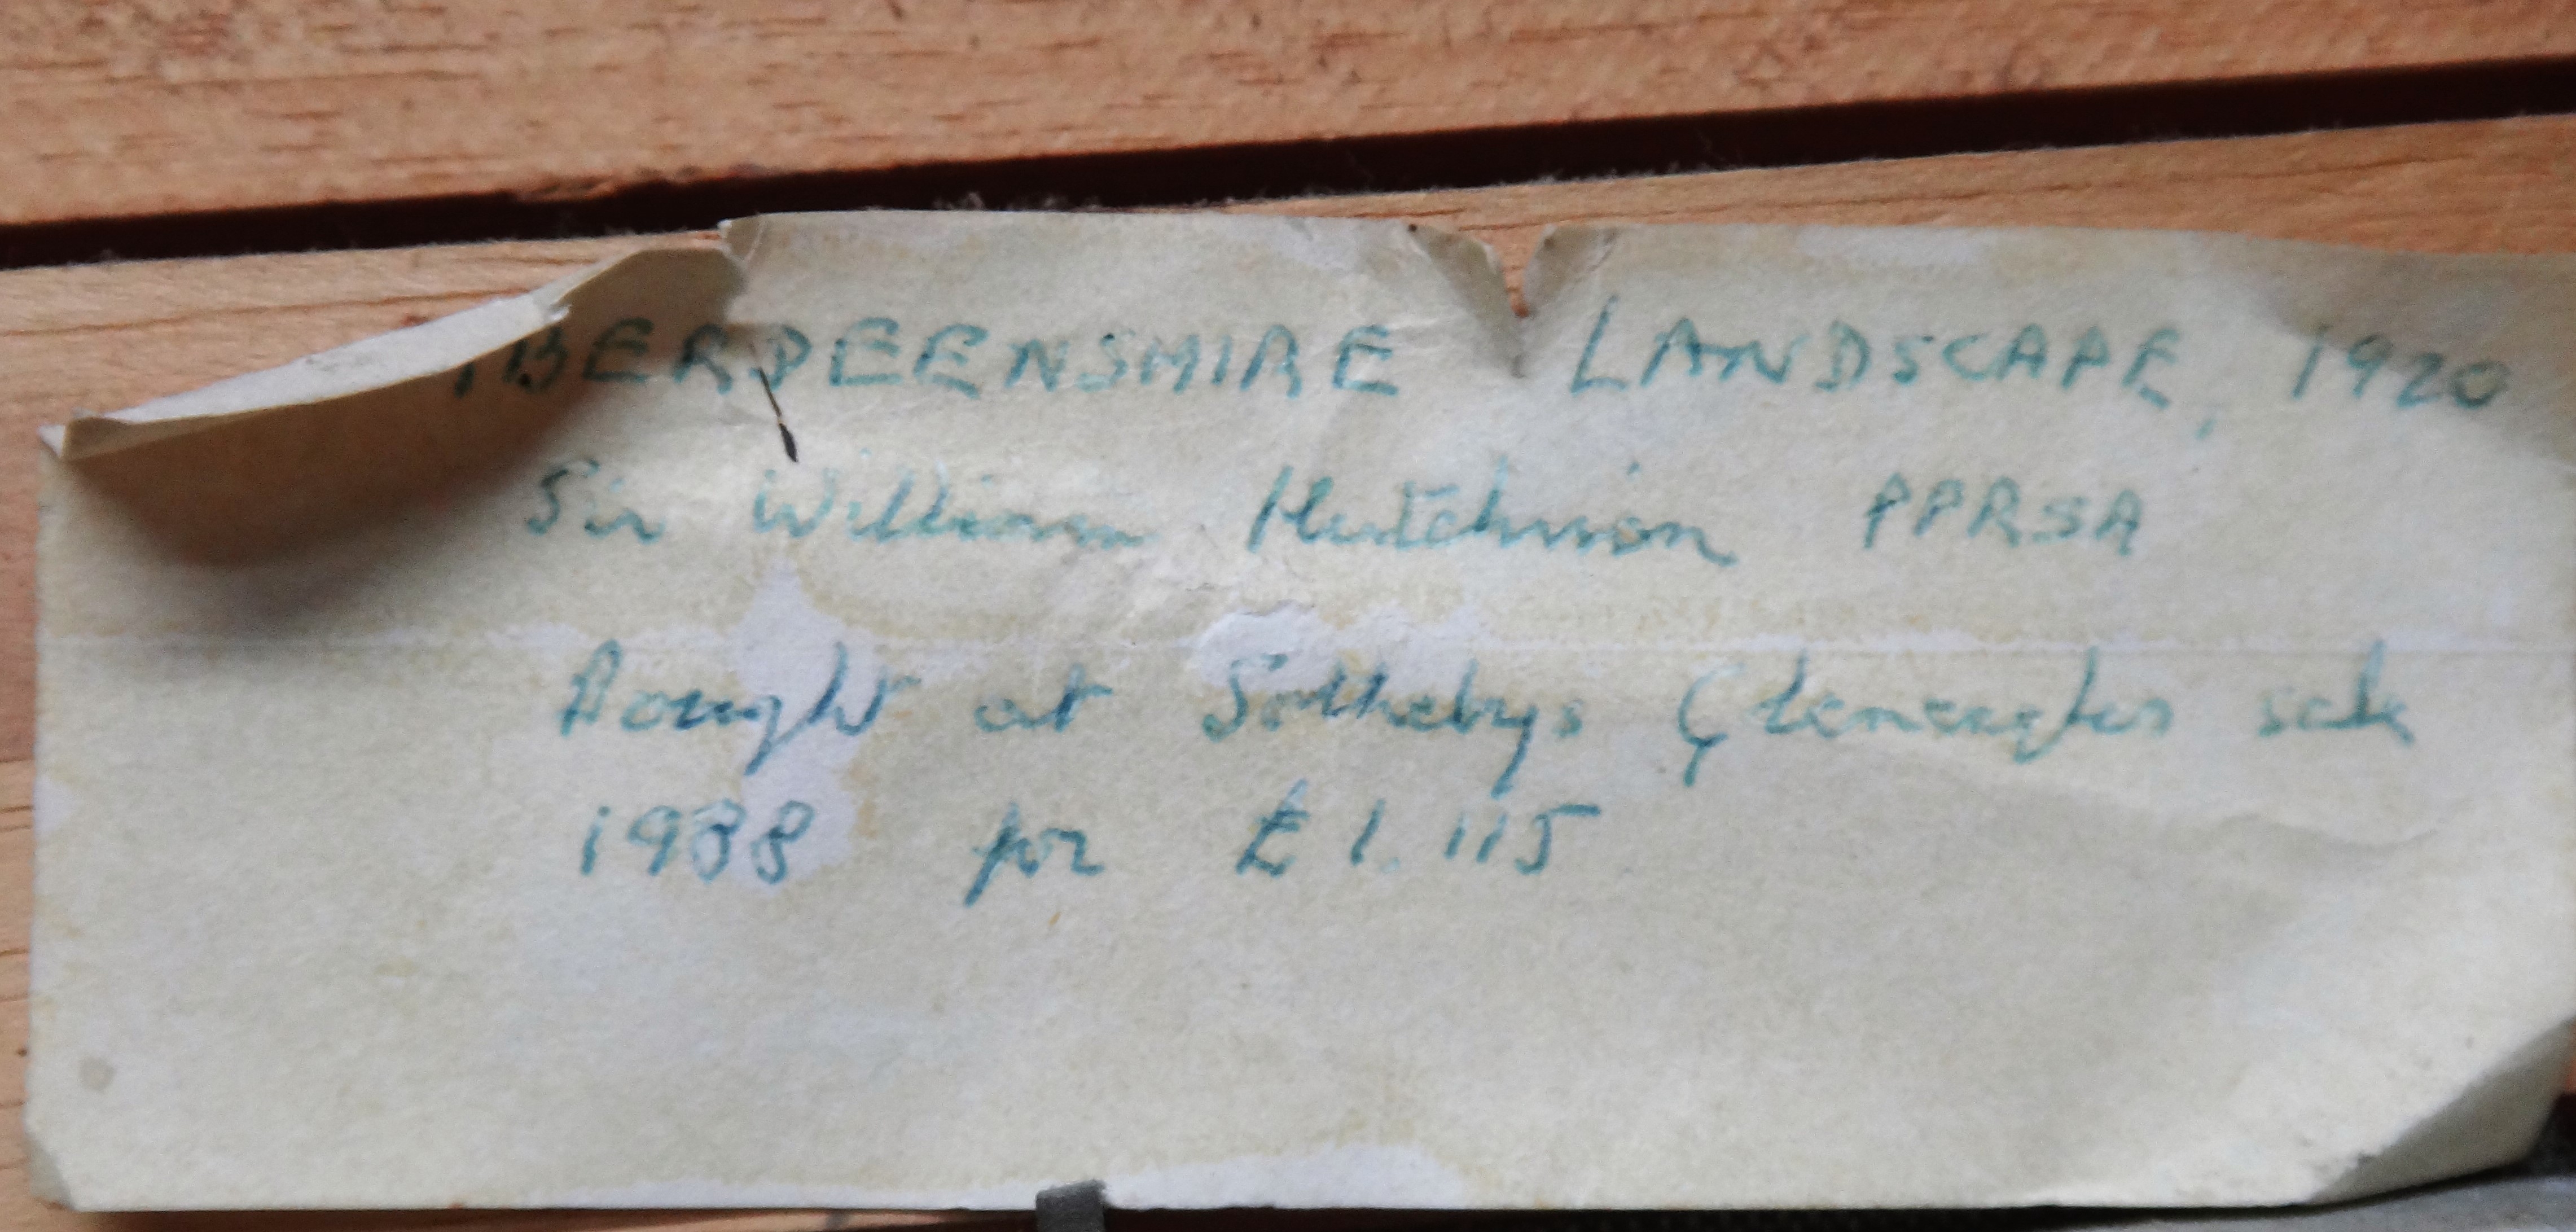 ABERDEENSHIRE LANDSCAPE, 1920
Sir William Hutchison PPRSA
Bought at Sothebys Gleneagles sale
1988 for £1.115